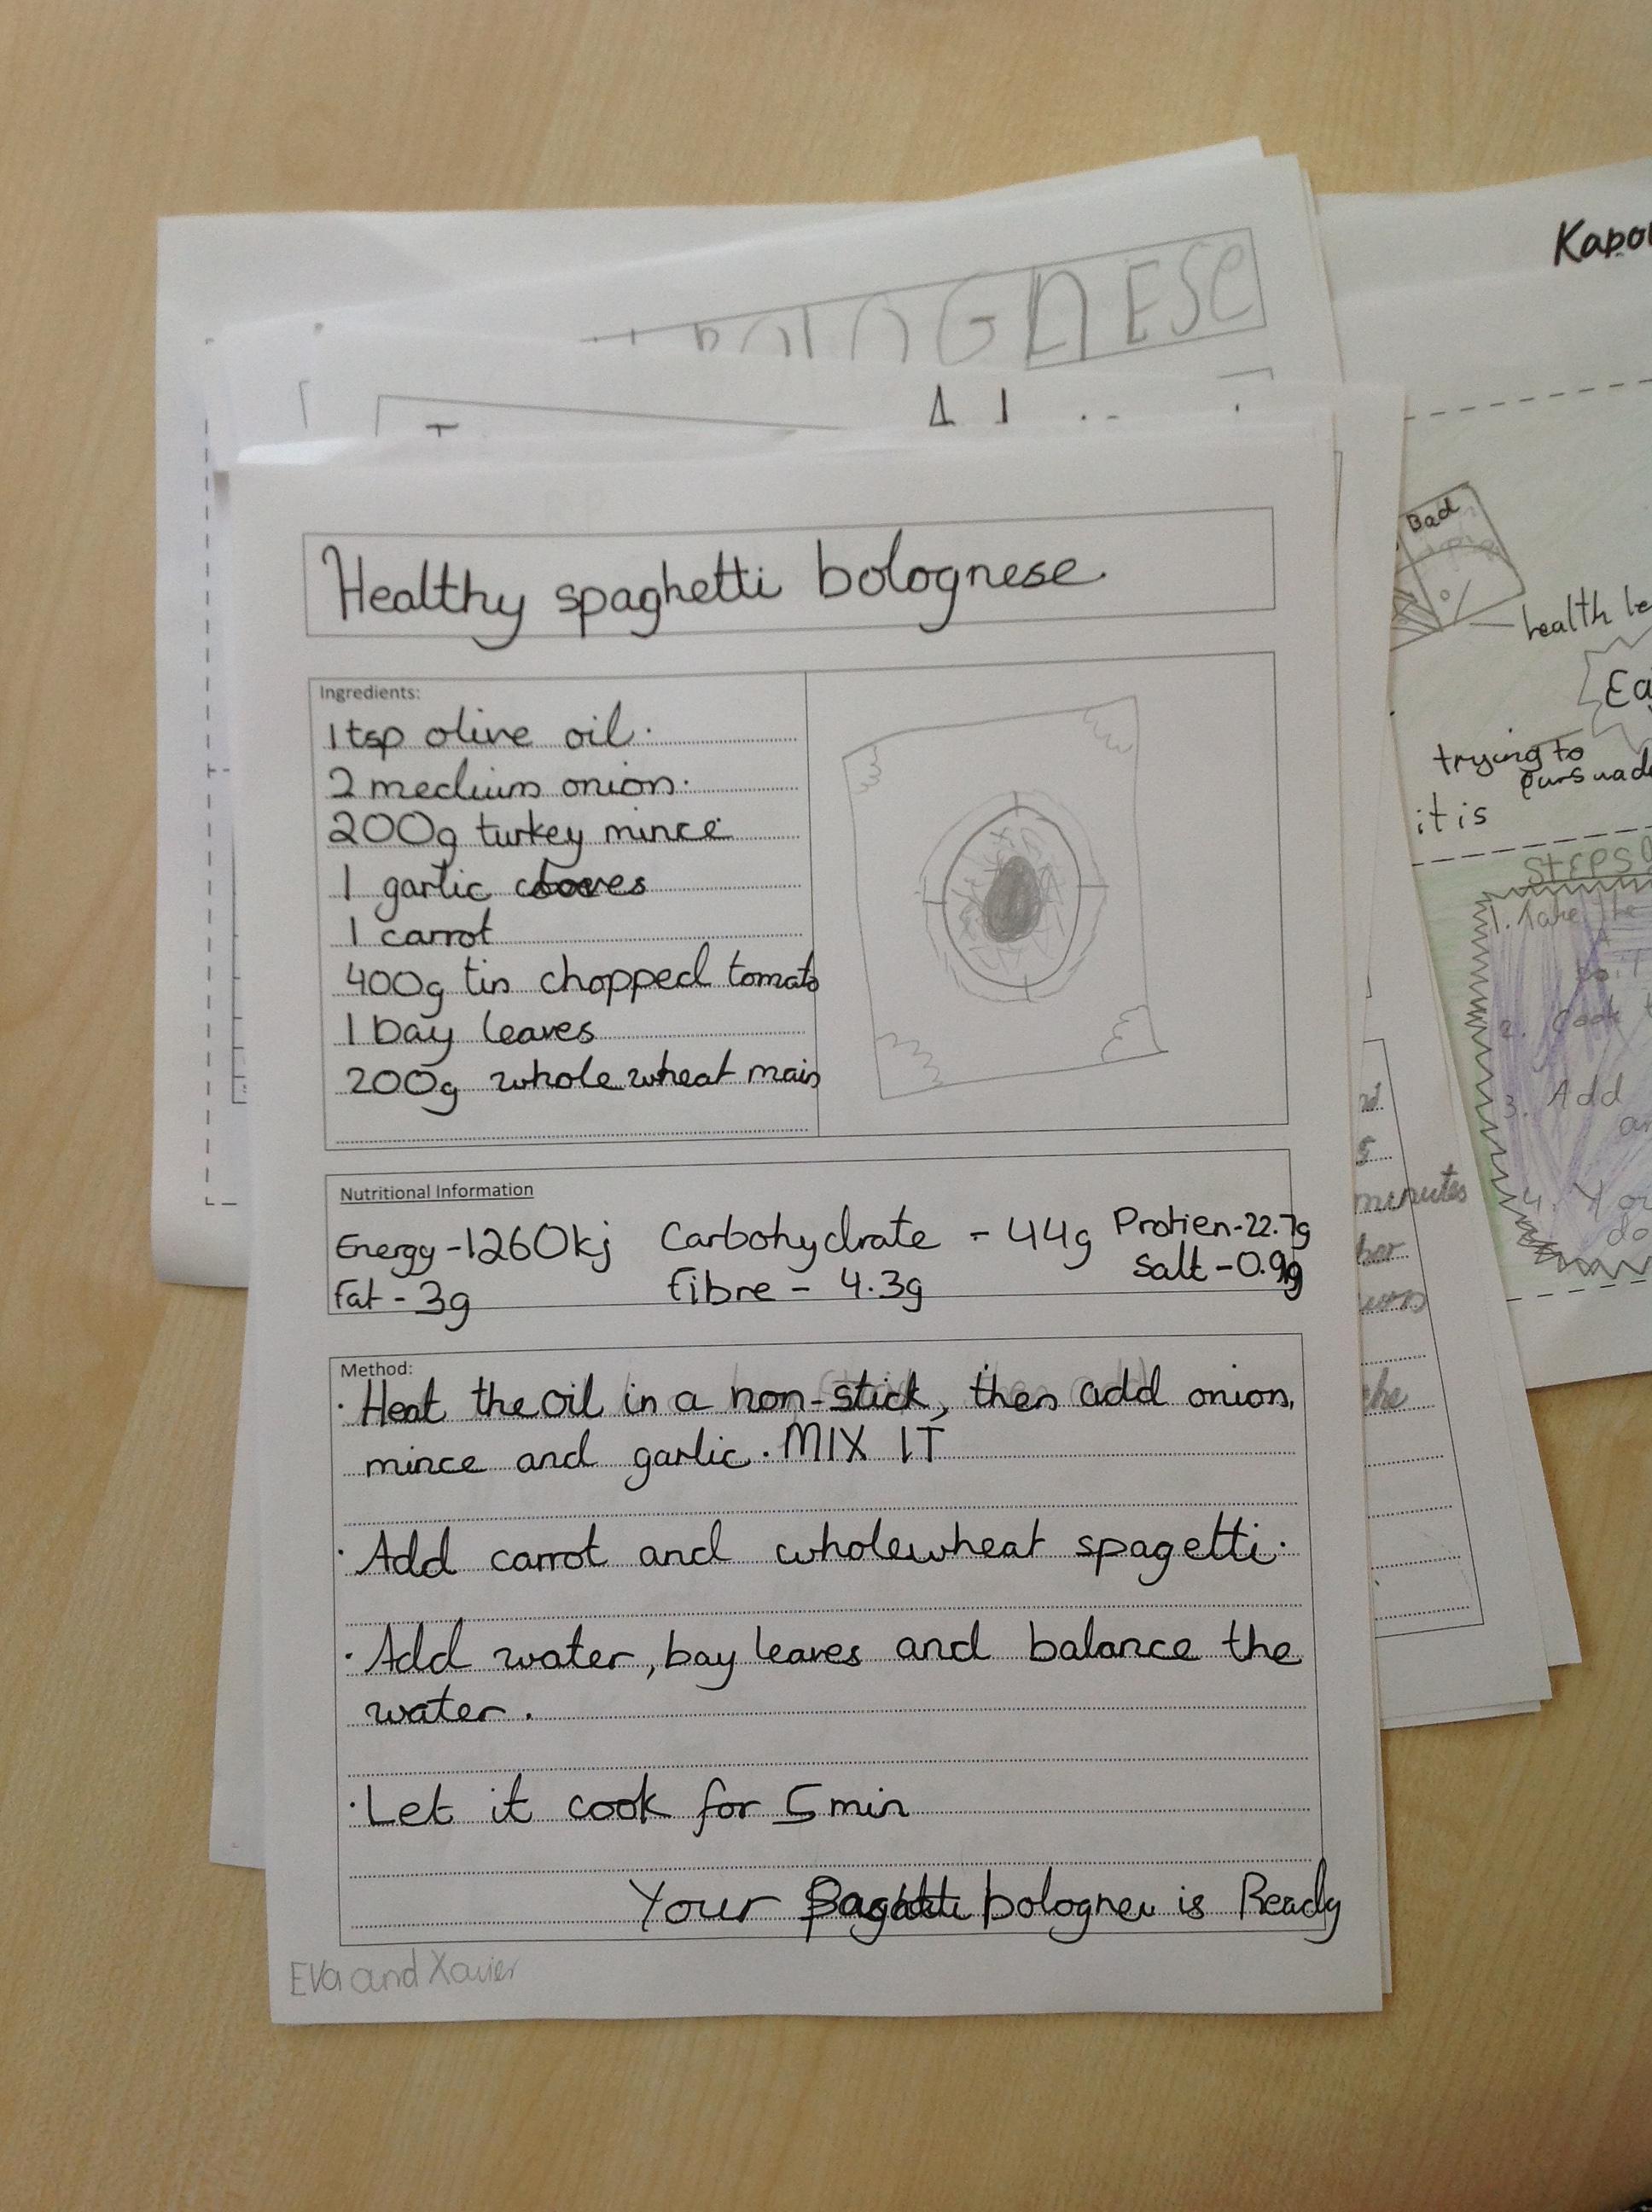 Kapo
GNESE
Bad
health le
Ea
trying to
it is
STEPS
1. Take the
2. Cook
3. Add
4. You
do
minutes
the
Healthy spaghetti bolognese.
Ingredients:
1 tsp olive oil.
2 medium onion.
200g turkey mince
1 garlic cloves
1 carrot
400g tin chopped tomato
1 bay leaves
200g whole wheat
Nutritional Information
Energy - 1260kj Carbohydrate - 44g Protien - 22.7g
Fat - 3g fibre - 4.3g Salt - 0.9g
Method:
· Heat the oil in a non-stick, then add onion,
mince and garlic. MIX IT
· Add carrot and wholewheat spagetti.
· Add water, bay leaves and balance the
water.
· Let it cook for 5 min
Your bolognes is Ready
Eva and Xavier